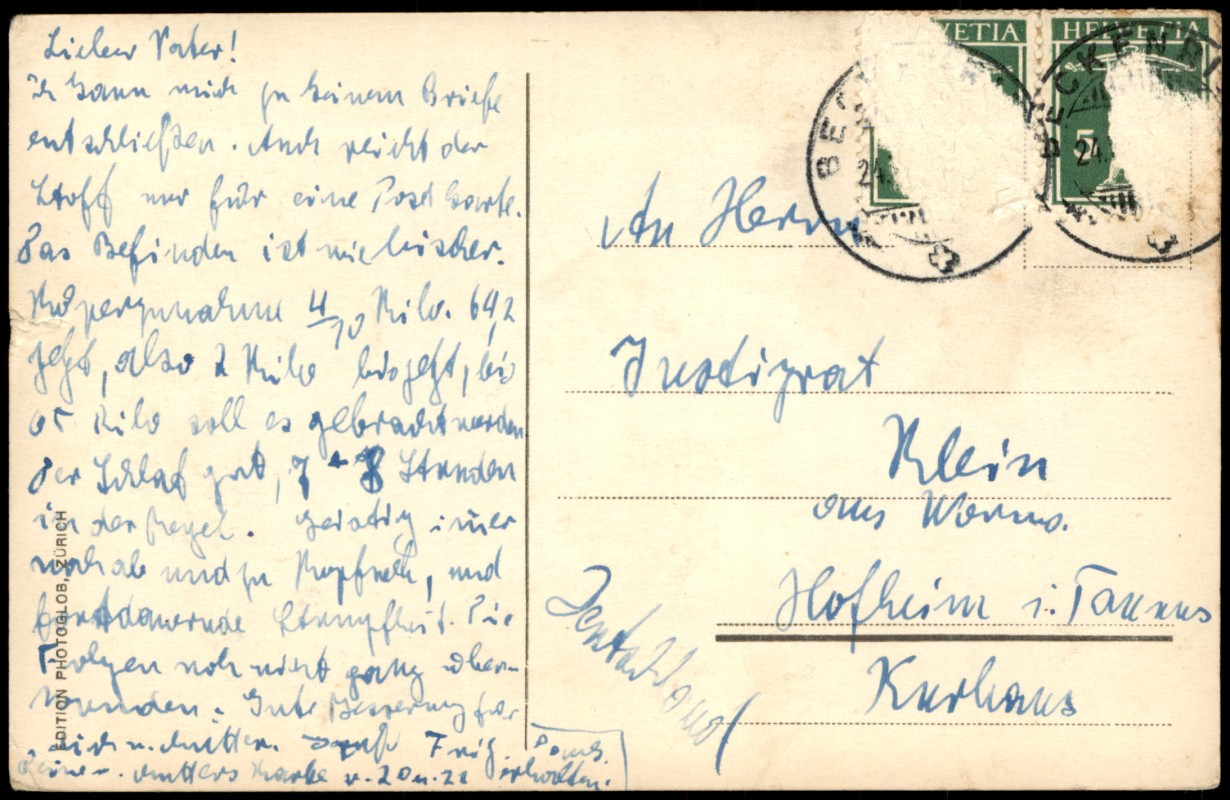 Lieber Vater!
Ich kann mich zu keinem Briefe
entschließen. Auch reicht der
Stoff nur für eine Postkarte.
Das Befinden ist
4/10 Kilo. 64,2
jetzt, also 2 Kilo bis jetzt, bis
65 Kilo soll es gebracht werden
Der Schlaf gut, 7 - 8 Stunden
in der Regel. Geistig immer
noch ab und zu Kopfweh, und
fortdauernde Stumpfheit. Die
Folgen noch nicht ganz über-
wunden. Gute Besserung für
Dich u. Mutter. Fritz.
Deine u. Mutters Karte v. 20 u. 22 erhalten.
EDITION PHOTOGLOB, ZÜRICH
VETIA
HELVETIA
BECKENRI
24.
5
An Herrn
Justizrat
Klein
aus Worms.
Hofheim i. Taunus
Kurhaus
Deutschland